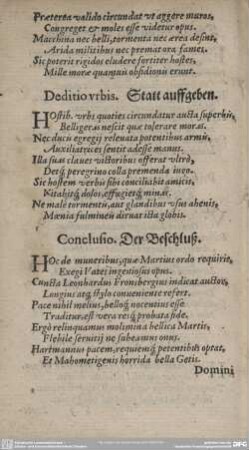 Præterea valido circundat vt aggere muros,
Congreget & moles esse videtur opus.
Machina nec belli, tormenta nec ærea desint,
Arida militibus nec premat ora fames.
Sic poterit rigidos eludere fortiter hostes,
Mille moræ quamuis obsidionis erunt.
Deditio vrbis. Statt auffgeben.
HOstib. vrbs quoties circundatur aucta superbis,
Belligeras nescit quæ tolerare moras.
Nec ducis egregij releuata potentibus armis,
Auxiliatrices sentit adesse manus.
Illa suas claues victoribus offerat vltrò,
Detq; peregrino colla premenda iugo.
Sic hostem verbis sibi conciliabit amicis,
Vitabitq; dolos, effugietq; minas.
Ne male tormentis, aut glandibus vsus ahenis,
Mœnia fulmineis diruat icta globis.
Conclusio. Der Beschluß.
HOc de muneribus, quæ Martius ordo requirit,
Exegi Vates ingeniosus opus.
Cuncta Leonhardus Fronsbergius indicat auctor,
Longius atq; stylo conueniente refert.
Pace nihil melius, bello q; nocentius esse
Traditur, est vera resq; probata fide.
Ergò relinquamus molimina bellica Martis,
Flebile seruitij ne subeamus onus.
Hartmannus pacem, requiemq; petentibus optat,
Et Mahometigenis horrida bella Getis.
Domini